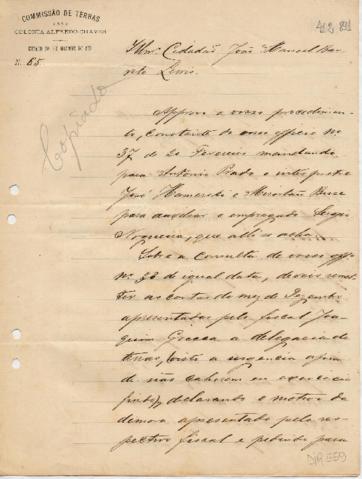 COMMISSÃO DE TERRAS
COLONIA ALFREDO CHAVES
N. 65
Copiado
Cidadão João Manoel
Lima.
Approvo o vosso procedimen-
to, constante do vosso officio No
37 de 20 Fevereiro mandando
para Antonio Prado o interprete
José e
para auxiliar o empregado Sergio
Nogueira, que alli se acha.
Sobre a consulta de vosso off.
No de igual data, deveis remet-
ter as contas do mez de Dezembro
apresentadas pelo fiscal Joa-
quim a delegacia de
terras, visto a urgencia afim
de não cahirem em exercicio
findo, declarando o motivo da
demora apresentado pelo res-
pectivo fiscal e pedindo para
D/R 559